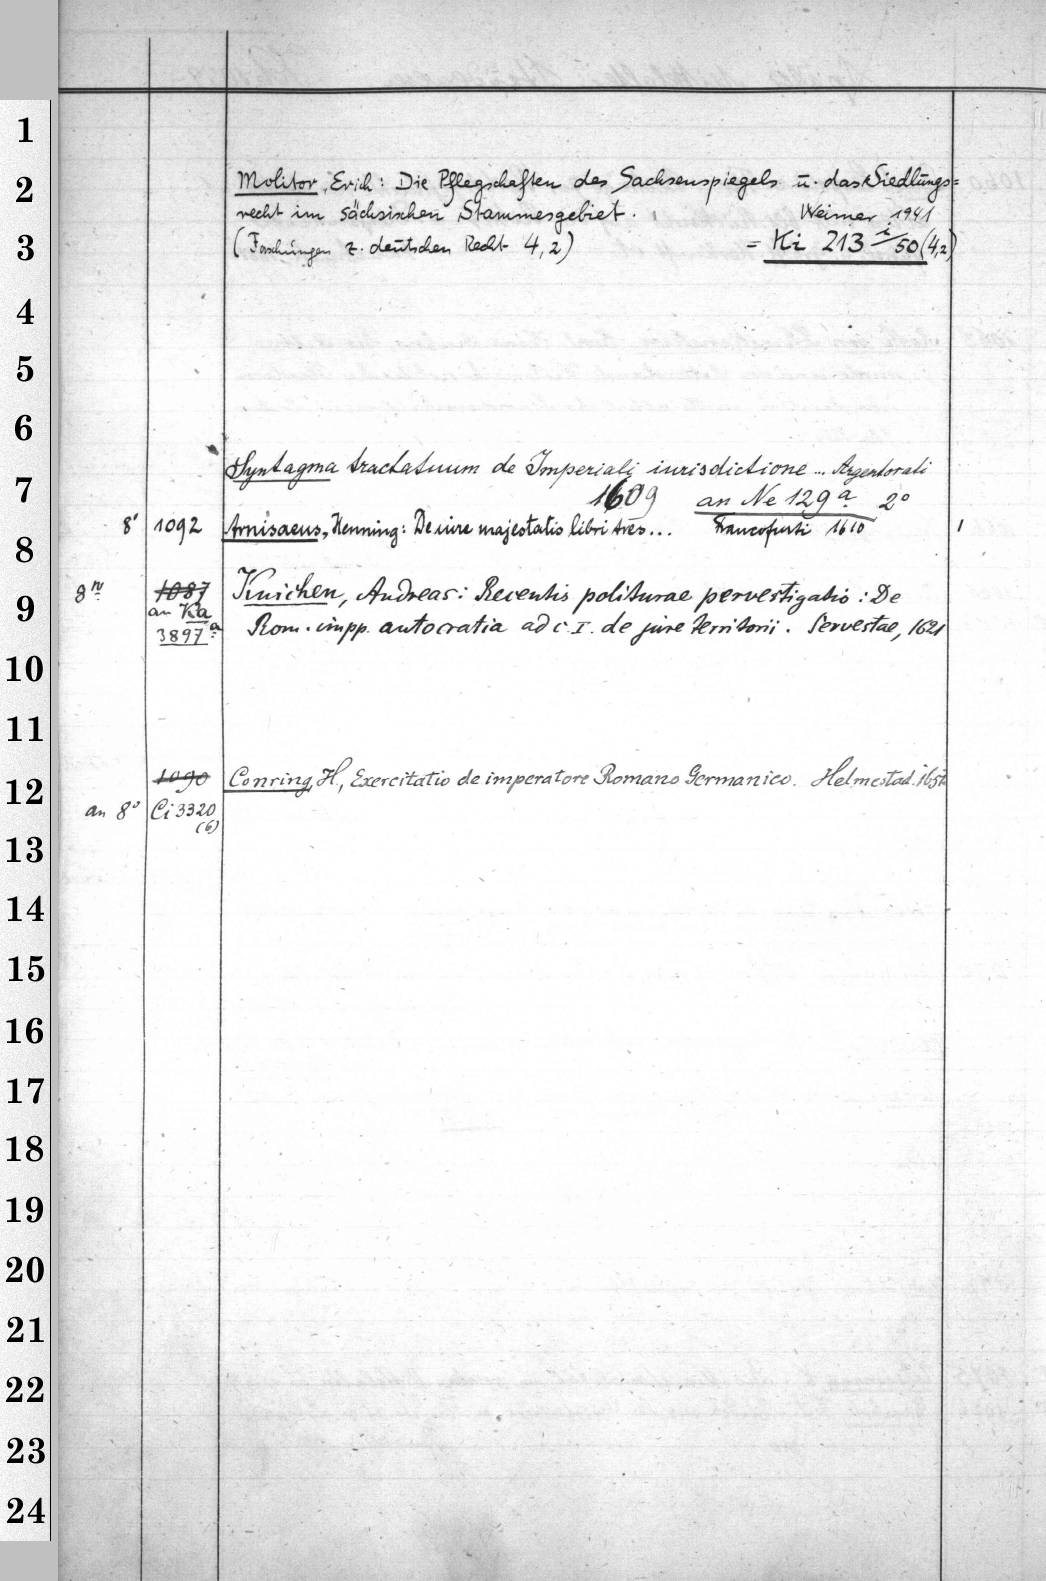 1
2
3
4
5
6
7
8
9
10
11
12
13
14
15
16
17
18
19
20
21
22
23
24
Molitor, Erich: Die Pflegschaften des Sachsenspiegels u. das Siedlungs=
recht im sächsischen Stammesgebiet. Weimar 1941
(Forschungen z. deutschen Recht 4,2) = Ki 213 i/50 (4,2)
Syntagma tractatuum de Imperiali iurisdictione ... Argentorati
1609 an Ne 129 a 2°
8° 1092 Arnisaeus, Henning: De iure majestatis libri tres... Francofurti 1610 1
8° 1087 Knichen, Andreas: Recentis politurae pervestigatio: De
an Ka
3897 a Rom. impp. autocratia ad c. I. de jure territorii. Servestae, 1621
1090 Conring, H., Exercitatio de imperatore Romano Germanico. Helmestad.
an 8° Ci 3320
(6)